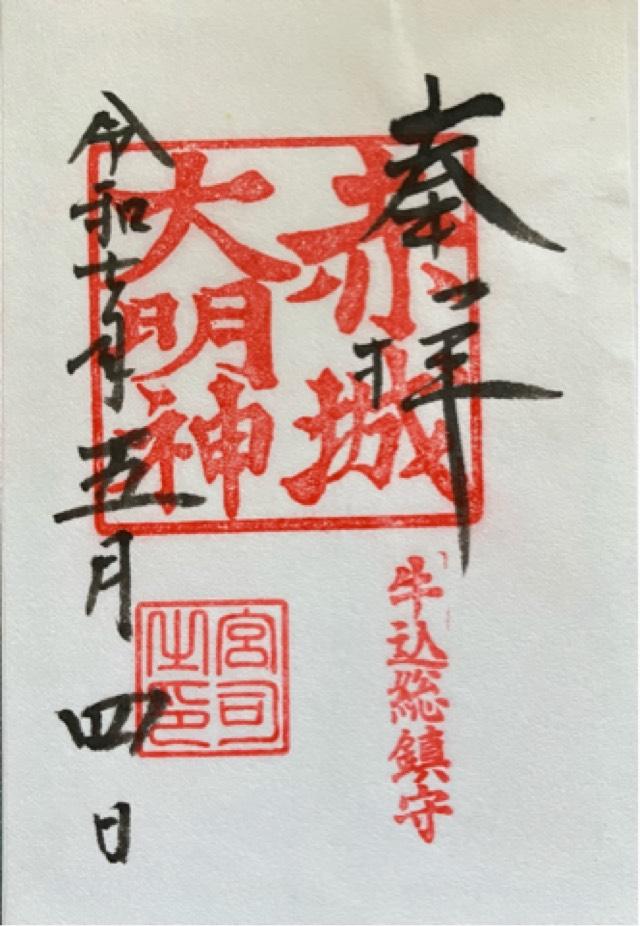 奉拝
赤城
大明神
牛込総鎮守
宮司
之印
令和
年五月四日